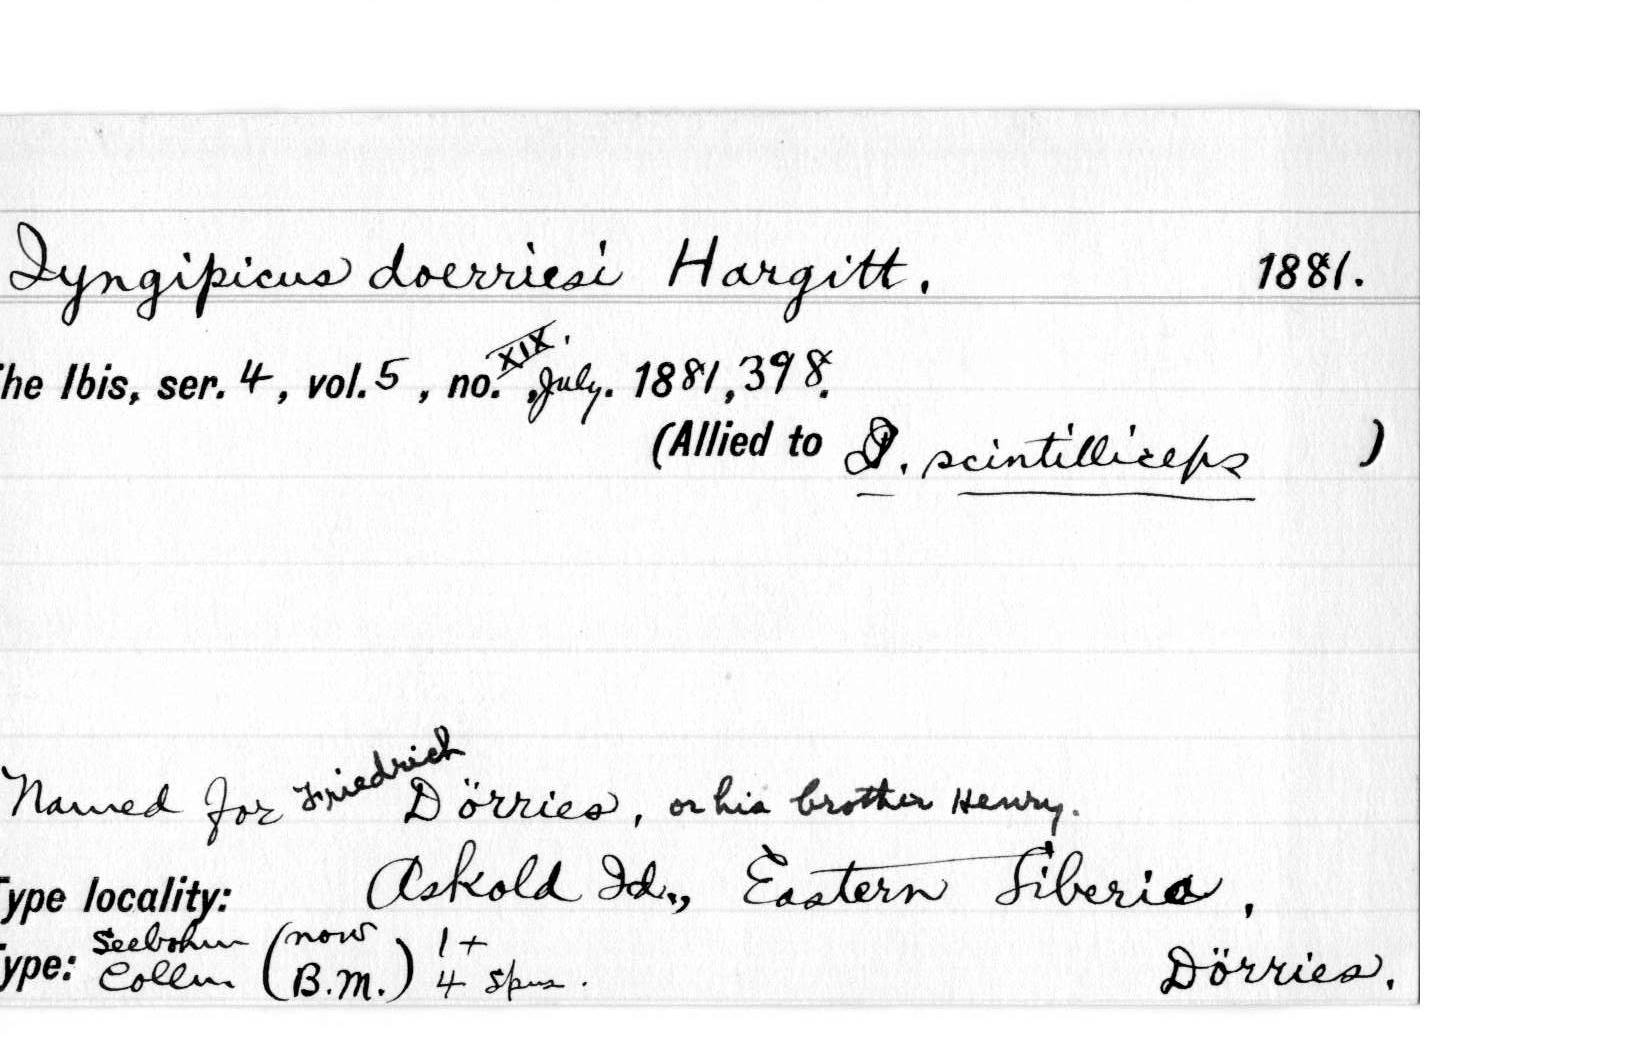 Iyngipicus doerriesi Hargitt. 1881.
he Ibis, ser. 4, vol. 5, no. XIX., July. 1881, 398.
(Allied to I. scintilliceps )
Named for Friedrich Dörries, or his brother Henry.
ype locality: Askold Id., Eastern Siberia,
ype: Seebohm Colln (now B.M.) 1+ 4 spns. Dörries.